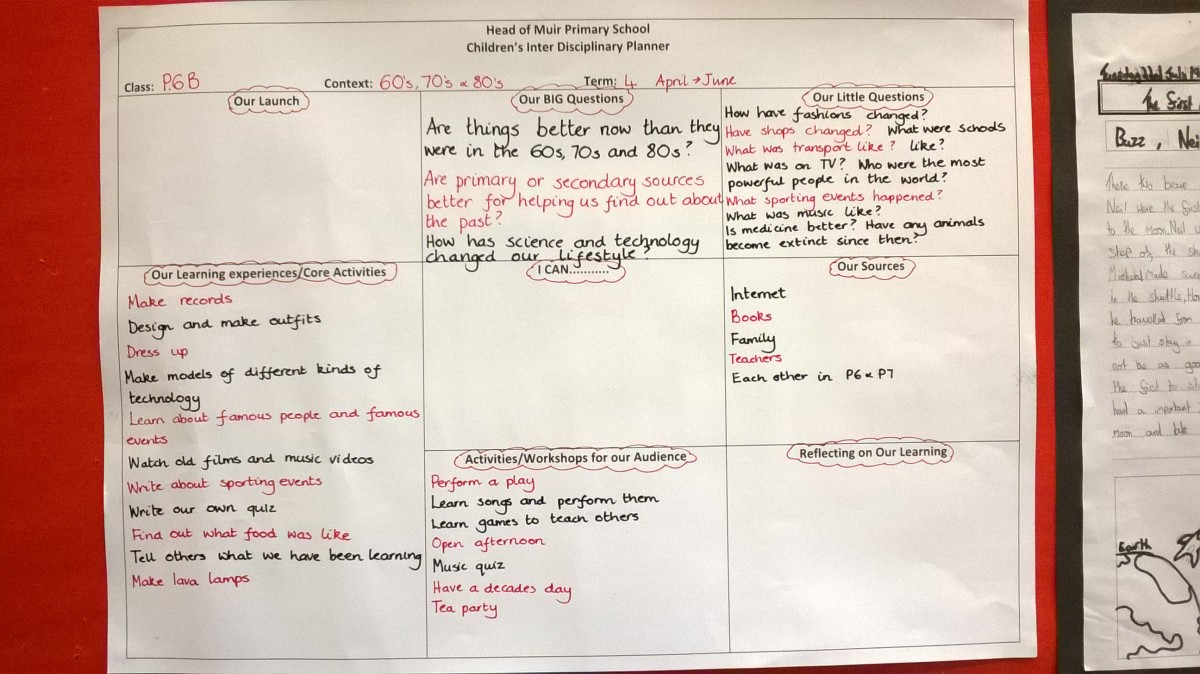 Head of Muir Primary School
Children's Inter Disciplinary Planner
Class: P.6B Context: 60's, 70's & 80's Term: 4 April → June
Our Launch
Our BIG Questions
Are things better now than they
were in the 60s, 70s and 80s?
Are primary or secondary sources
better for helping us find out about
the past?
How has science and technology
changed our lifestyle?
Our Little Questions
How have fashions changed?
Have shops changed? What were schools
What was transport like? like?
What was on TV? Who were the most
powerful people in the world?
What sporting events happened?
What was music like?
Is medicine better? Have any animals
become extinct since then?
Our Learning experiences/Core Activities
Make records
Design and make outfits
Dress up
Make models of different kinds of
technology
Learn about famous people and famous
events
Watch old films and music videos
Write about sporting events
Write our own quiz
Find out what food was like
Tell others what we have been learning
Make lava lamps
I CAN...........
Our Sources
Internet
Books
Family
Teachers
Each other in P6 & P7
Activities/Workshops for our Audience
Perform a play
Learn songs and perform them
Learn games to teach others
Open afternoon
Music quiz
Have a decades day
Tea party
Reflecting on Our Learning
The first
Buzz, Neil
These two brave
Neil were the first
to the Moon. Neil
step of the
Michael Made
in the shuttle,
he travelled from
to just stay in
not be as good
the first to
had a important
Moon and
Earth